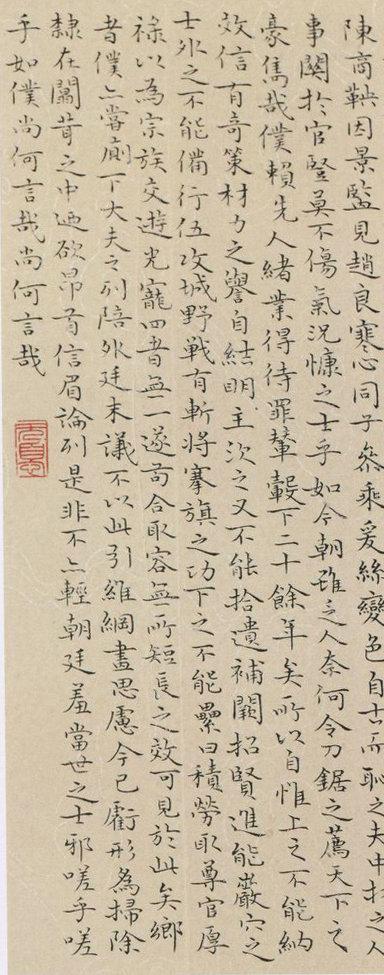 陳商鞅因景監見趙良寒心同子參乘爰絲變色自古而恥之夫中材之人
事關於宦豎莫不傷氣況慷之士乎如今朝雖乏人奈何令刀鋸之薦天下之
豪雋哉僕賴先人緒業得待罪輦轂下二十餘年矣所以自惟上之不能納
效信有奇策材力之譽自結明主次之又不能拾遺補闕招賢進能巖穴之
士外之不能備行伍攻城野戦有斬將搴旗之功下之不能纍日積勞取尊官厚
祿以為宗族交遊光寵四者無一遂苟合取容無所短長之效可見於此矣鄉
者僕亦嘗廁下大夫之列陪外廷末議不以此引維綱盡思慮今已虧形為掃除
隸在闒茸之中迺欲昂首信眉論列是非不亦輕朝廷羞當世之士邪嗟乎嗟
乎如僕尚何言哉尚何言哉